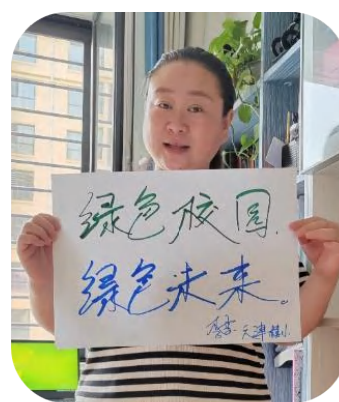 绿色校园
绿色未来。
天津桂小